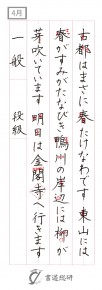 4月
古都はまさに春たけなわです 東山には
春がすみがたなびき鴨川の岸辺には 柳が
芽吹いています 明日は金閣寺へ行きます
一般 段級
書道総研